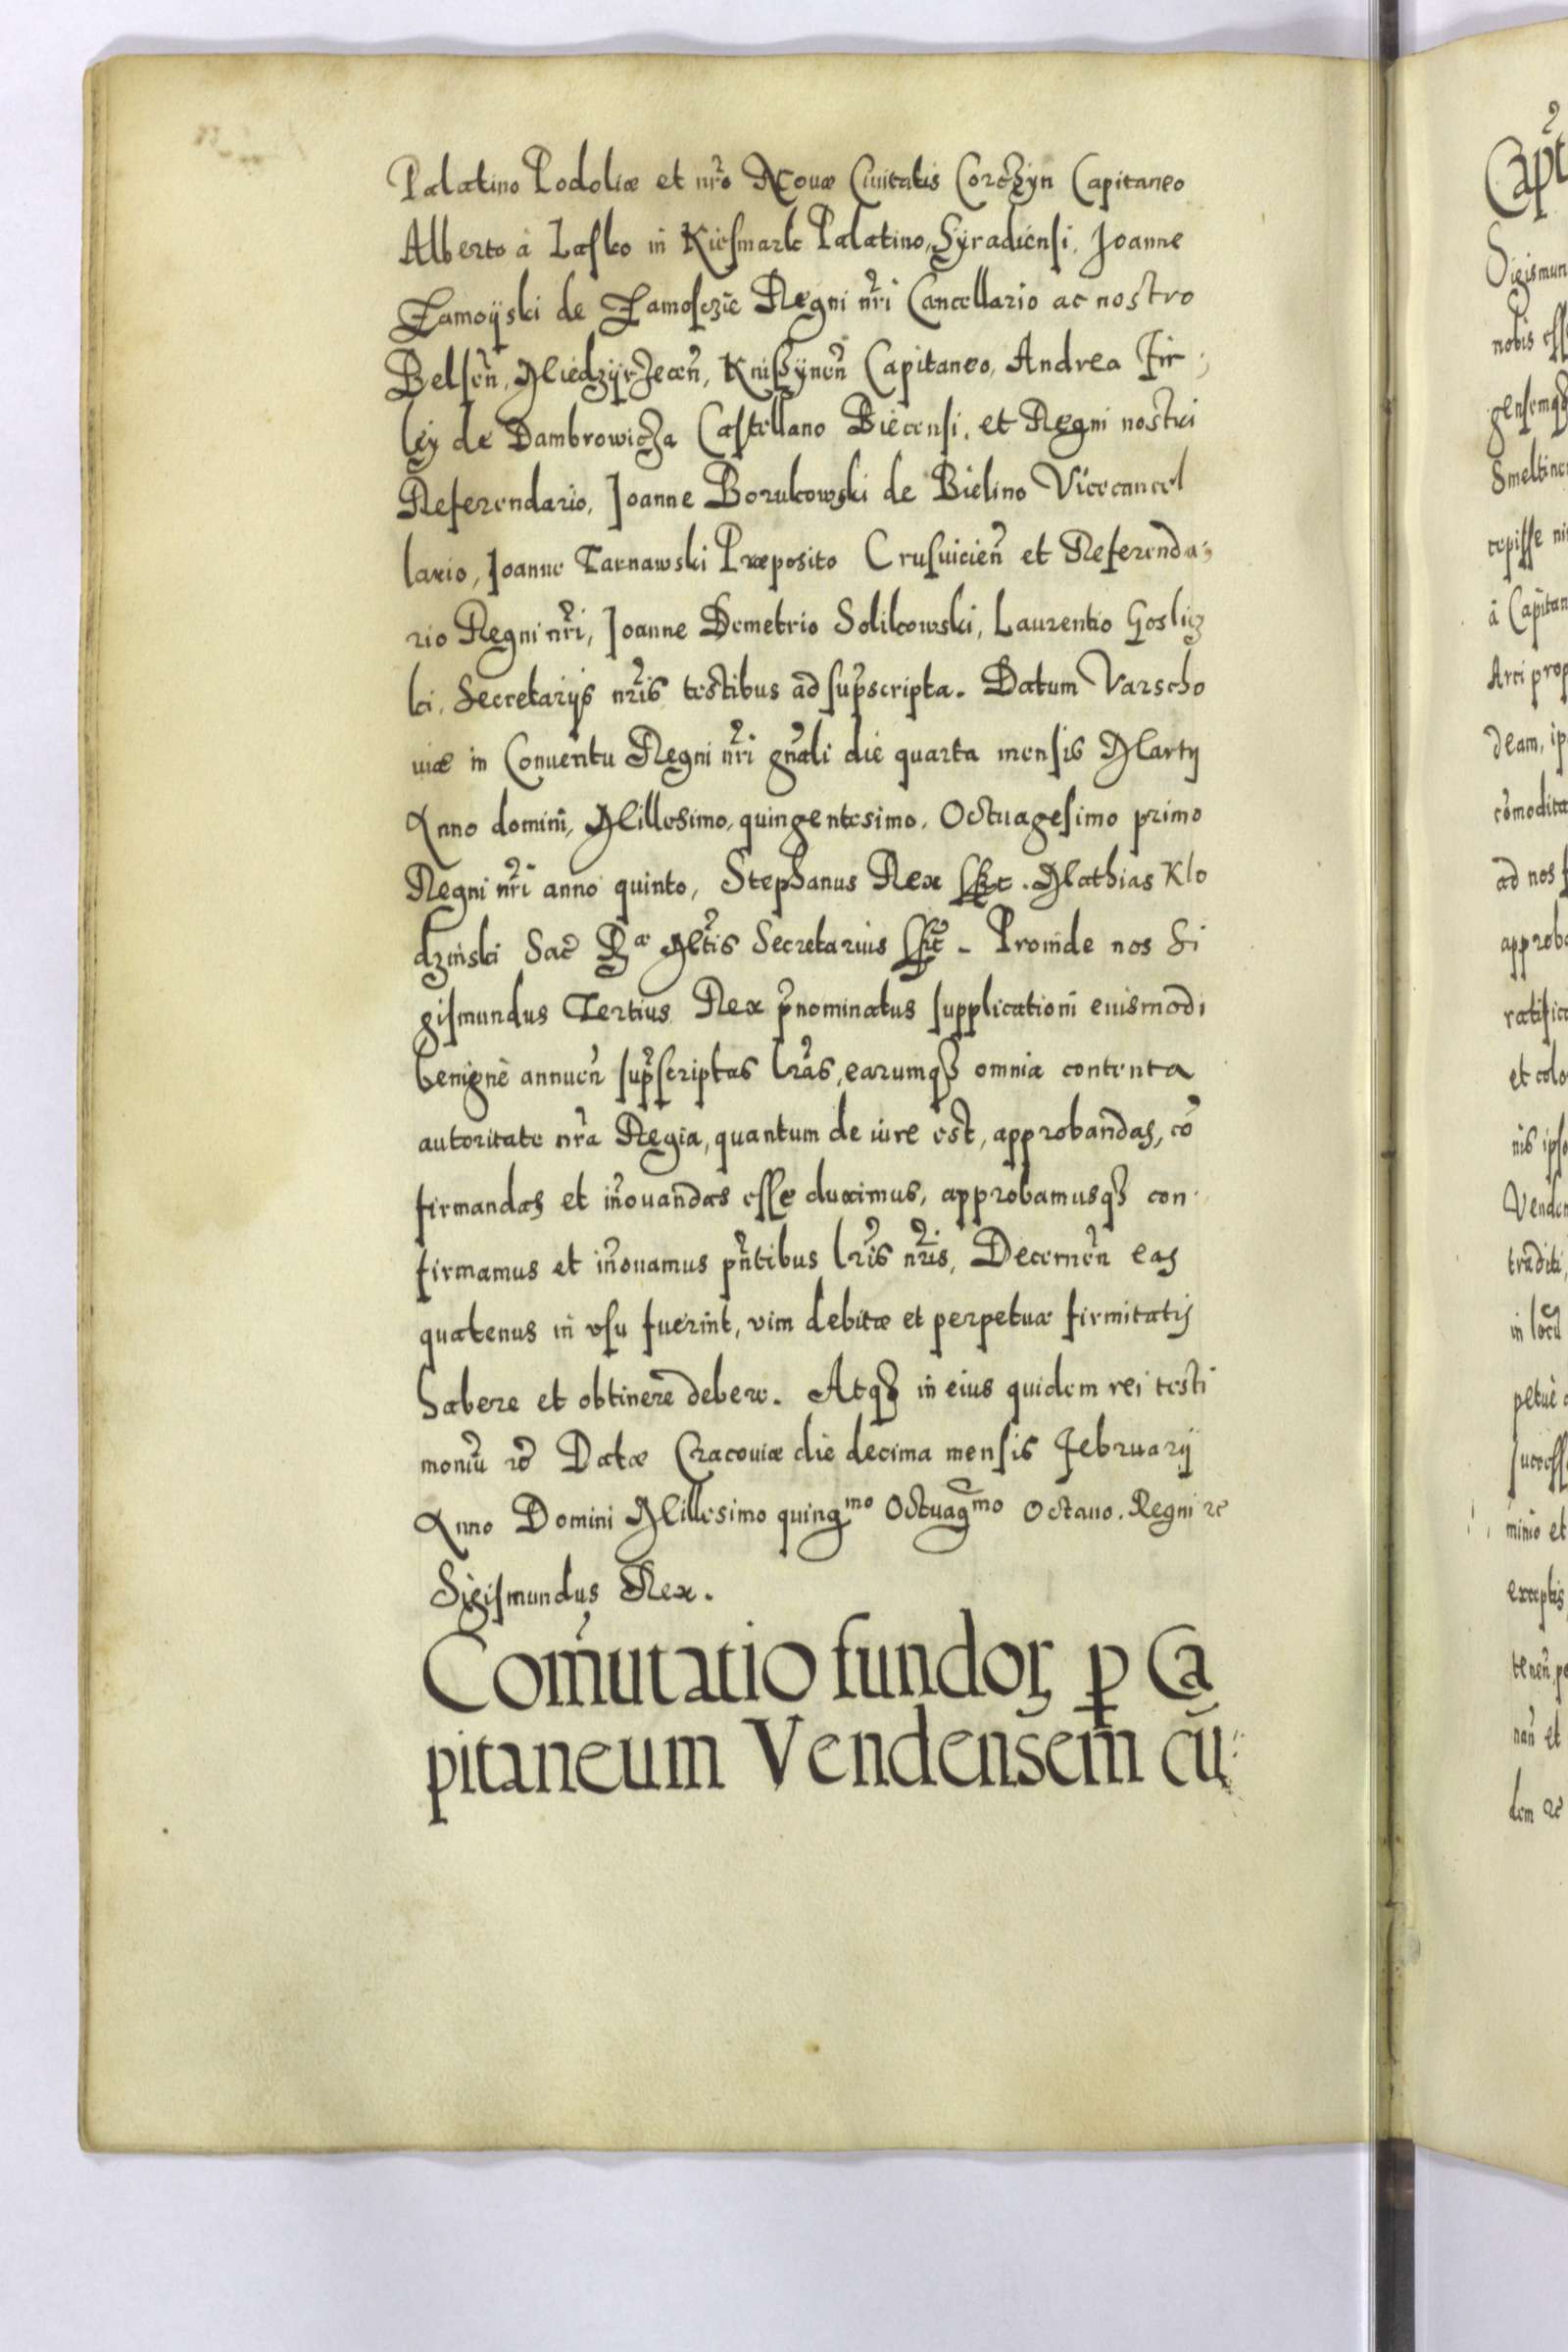 Palatino Podoliæ et nr̃o Nouæ Ciuitatis Corczÿn Capitaneo
Alberto à Lasko in Kiesmark Palatino Sÿradiensi, Joanne
Zamoÿski de Zamosczie Regni nr̃i Cancellario ac nostro
Belseñ, Miedzÿrzeceñ, Knisÿneñ Capitaneo, Andrea Fir
leÿ de Dambrowicza Castellano Biecensi, et Regni nostri
Referendario, Joanne Borukowski de Bielino Vicecancel
lario, Joanne Tarnawski Præposito Crusuicieñ et Referenda
rio Regni nr̃i, Joanne Demetrio Solikowski, Laurentio Gosliz
ki, Secretarijs nr̃is testibus ad sup̃scripta. Datum Varscho
uiæ in Conuentu Regni nr̃i gñali die quarta mensis Martij
Anno domini, Millesimo, quingentesimo, Octuagesimo primo
Regni nr̃i anno quinto, Stephanus Rex Mathias Klo
dzinski Sac̃ Rᵃᵉ Mt̃is Secretarius Proinde nos Si
gismundus Tertius Rex p̃nominatus supplicationi euismodi
benignè annueñ sup̃scriptas lr̃as, earumqȝ omnia contenta
autoritate nr̃a Regia, quantum de iure est, approbandas, cõ
firmandas et iñouandas esse duximus, approbamusqȝ con
firmamus et iñouamus pñtibus lr̃is nr̃is, Decerneñ eas
quatenus in vsu fuerint, vim debitæ et perpetuæ firmitatis
habere et obtinere debere. Atqȝ in eius quidem rei testi
moniũ ꝛc̃ Datæ Cracouiæ die decima mensis Februarij
Anno Domini Millesimo quingᵐᵒ Octuagᵐᵒ Octauo. Regni ꝛc
Sigismundus Rex.
Com̃utatio fundoꝝ ꝑ Ca
pitaneum Vendensem̃ cũ